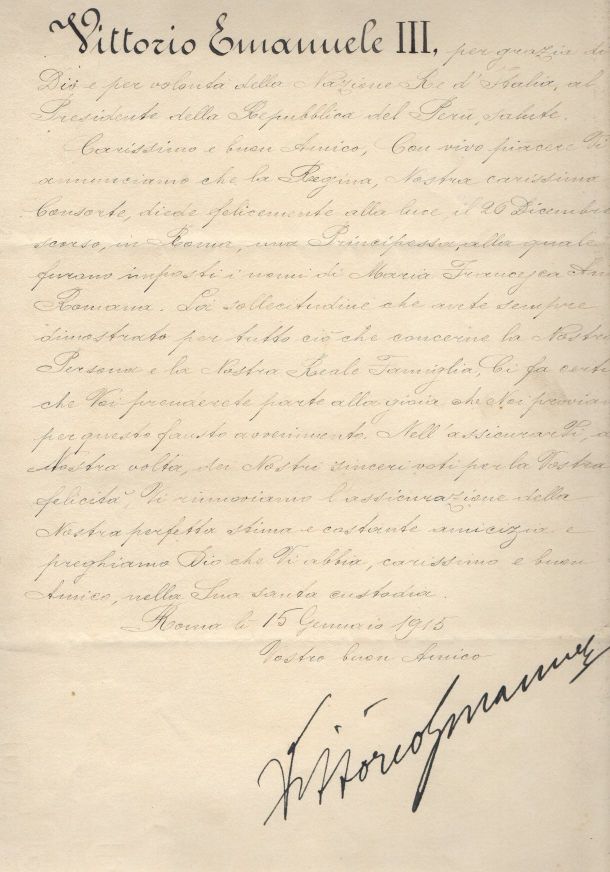 Vittorio Emanuele III, per grazia di
Dio e per volontà della Nazione Re d'Italia, al
Presidente della Repubblica del Perù, salute.
Carissimo e buon Amico, Con vivo piacere Vi
annunciamo che la Regina, Nostra carissima
Consorte, diede felicemente alla luce, il 26 Dicembre
scorso, in Roma, una Principessa, alla quale
furono imposti i nomi di Maria Francesca An
Romana. La sollecitudine che avete sempre
dimostrato per tutto ciò che concerne la Nostra
Persona e la Nostra Reale Famiglia, Ci fa certi
che Voi prenderete parte alla gioia che Noi provia
per questo fausto avvenimento. Nell'assicurarVi, a
Nostra volta, dei Nostri sinceri voti per la Vostra
felicità, Vi rinnoviamo l'assicurazione della
Nostra perfetta stima e costante amicizia e
preghiamo Dio che Vi abbia, carissimo e buon
Amico, nella Sua santa custodia.
Roma lì 15 Gennaio 1915
Vostro buon Amico
Vittorio Emanuele